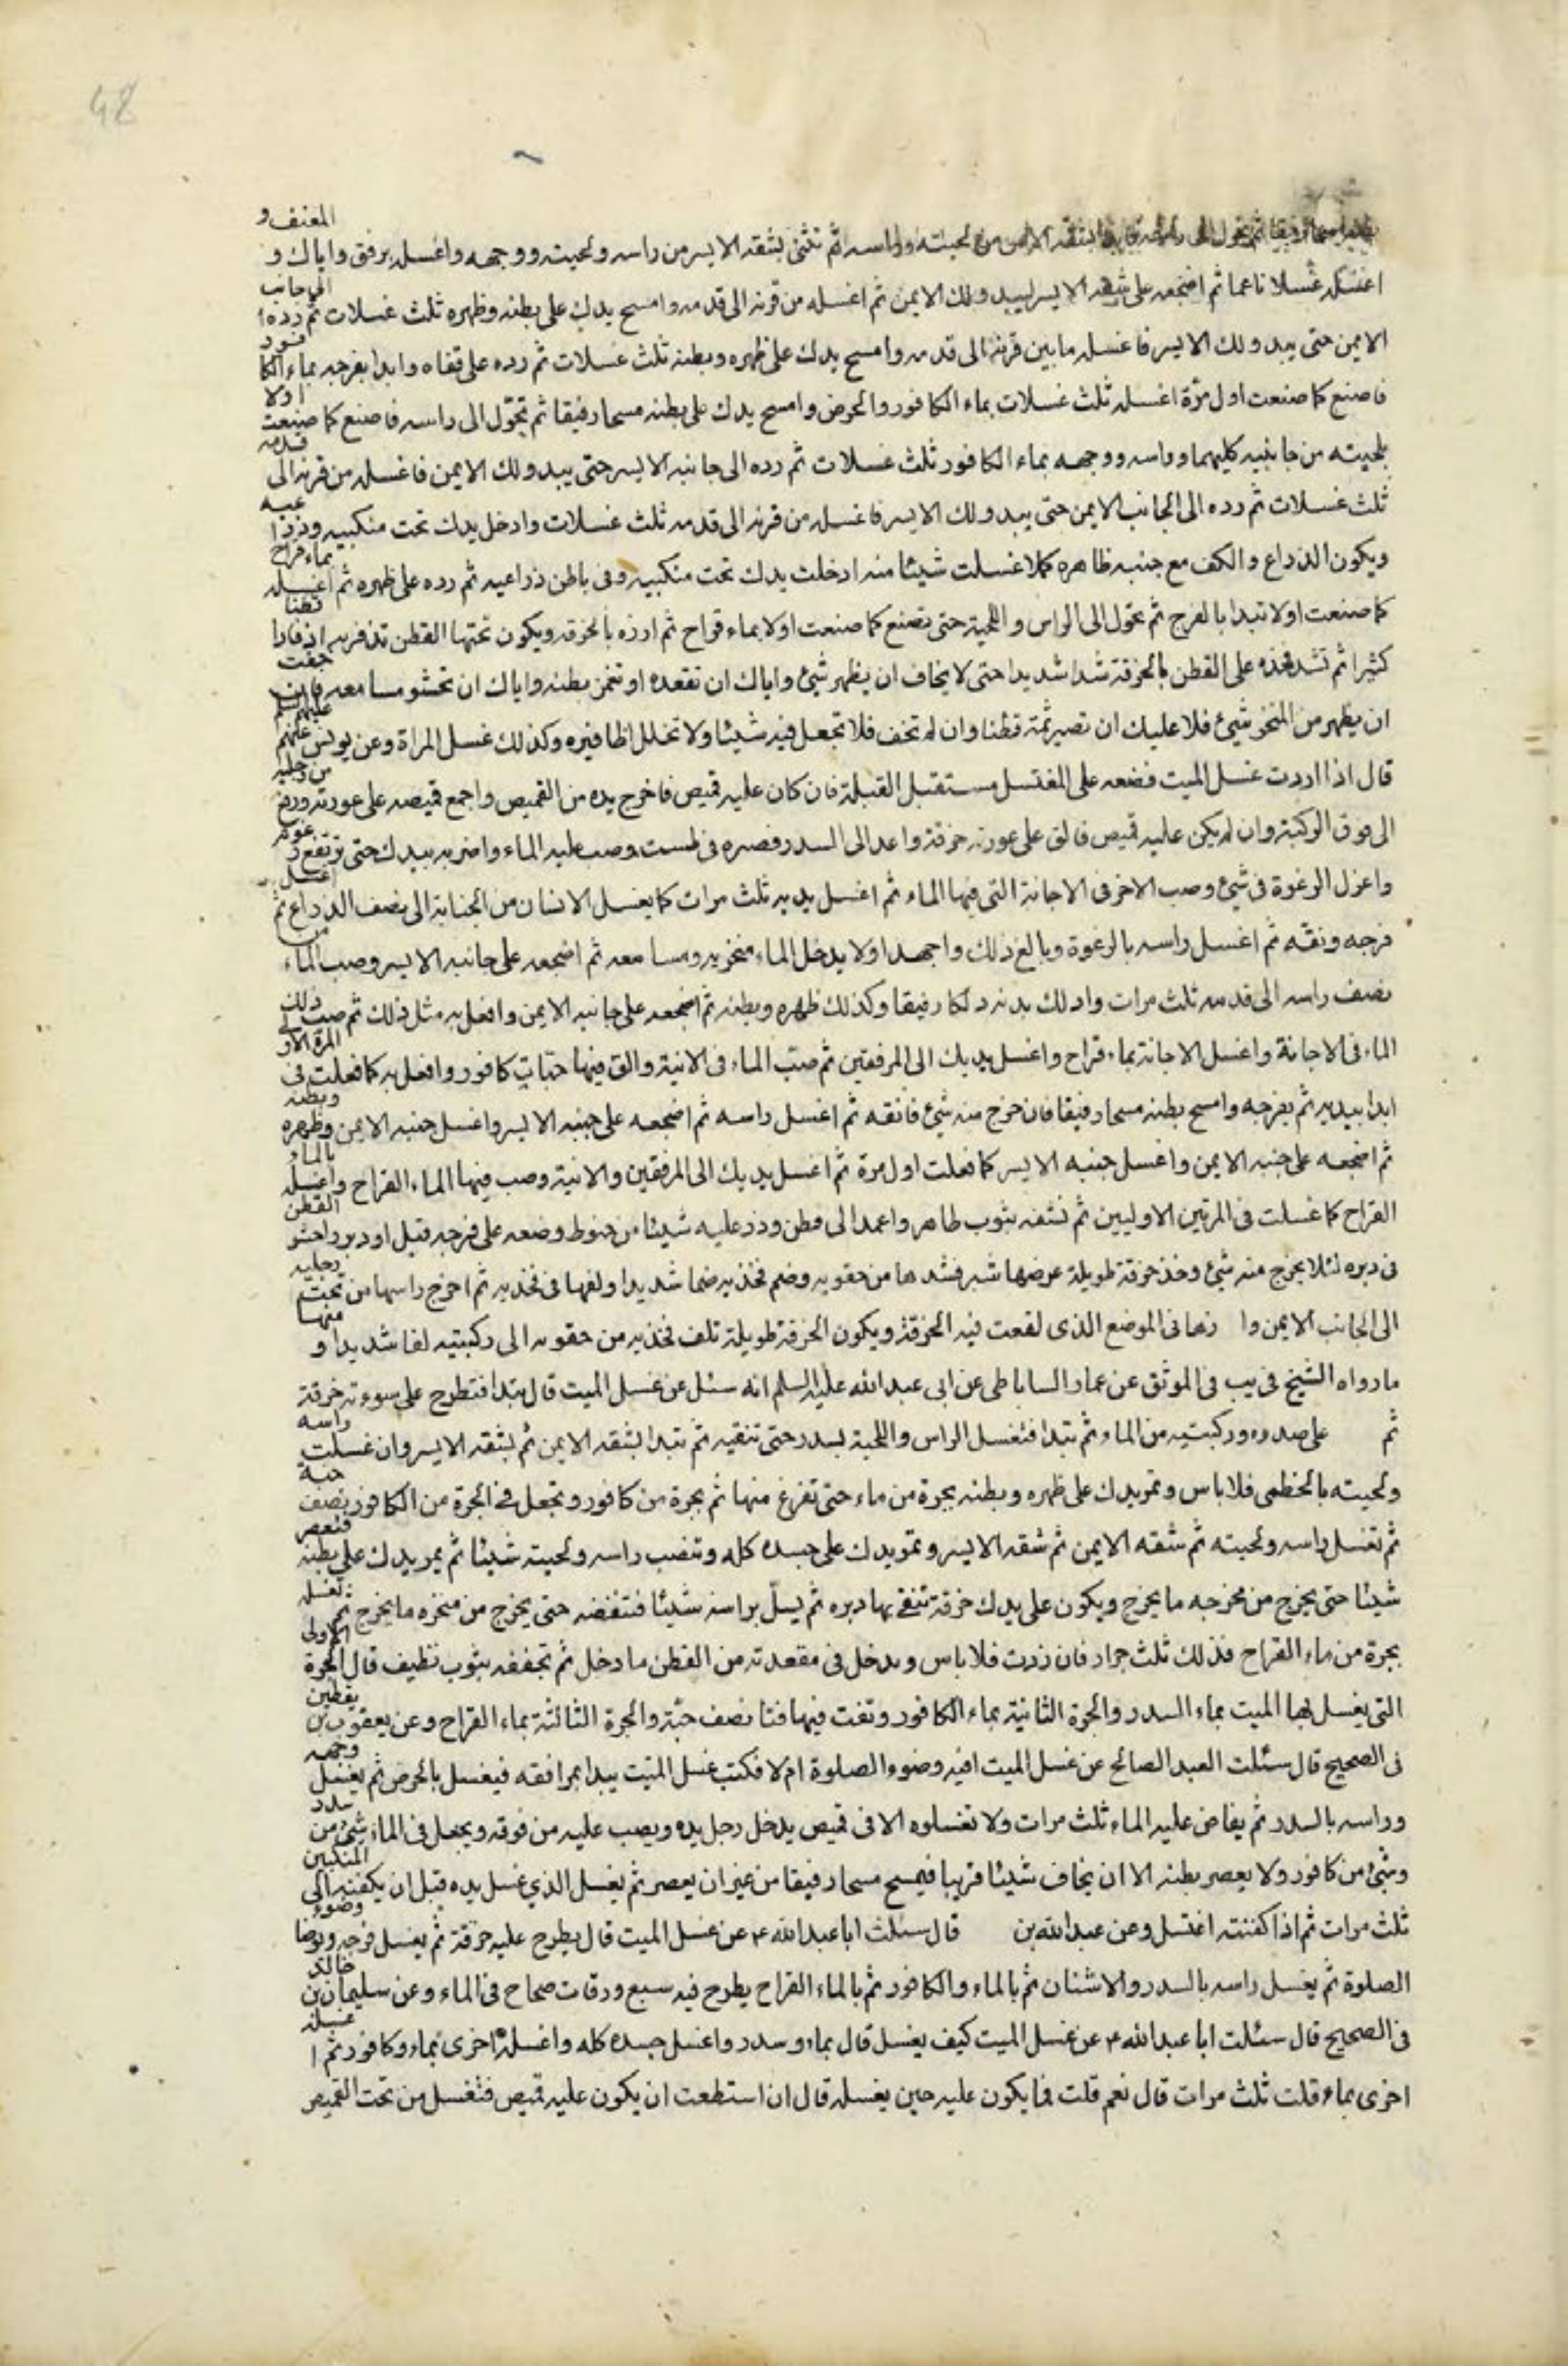 48
ثم تحول الى راسه فابدا بشقه الايمن من لحيته وراسه ثم تثنى بشقه الايسر من راسه ولحيته ووجهه واغسله برفق واياك و المعنف و
اغسله غسلا ناعما ثم اضجعه على شقه الايسر ليبدو لك الايمن ثم اغسله من قرنه الى قدمه وامسح يدك على بطنه وظهره ثلث غسلات ثم رده ا الى جانب
الايمن حتى يبدو لك الايسر فاغسله ما بين قرنه الى قدمه وامسح يدك على ظهره وبطنه ثلث غسلات ثم رده على قفاه وابدا بفرجه بماء الكا فور
فاصنع كما صنعت اول مرّة اغسله ثلث غسلات بماء الكافور والحرض وامسح يدك على بطنه مسحا رفيقا ثم تحوّل الى راسه فاصنع كما صنعت اولا
بلحيته من جانبيه كليهما وراسه ووجهه بماء الكافور ثلث غسلات ثم رده الى جانبه الايسر حتى يبدو لك الايمن فاغسله من قرنه الى قدمه
ثلث غسلات ثم رده الى الجانب الايمن حتى يبدو لك الايسر فاغسله من قرنه الى قدمه ثلث غسلات وادخل يدك تحت منكبيه وذرا عيه
ويكون الذراع والكف مع جنبه ظاهره كلما غسلت شيئا منه ادخلت يدك تحت منكبيه وفى باطن ذراعيه ثم رده على ظهره ثم اغسله بماء قراح
كما صنعت اولا تبدا بالفرج ثم تحول الى الراس واللحية حتى تصنع كما صنعت اولا بماء قراح ثم ازره بالخرقه ويكون تحتها القطن تذفره به اذفارا قطنا
كثيرا ثم تشد فخذه على القطن بالخرقة شدا شديدا حتى لا يخاف ان يظهر شئ واياك ان تقعده او تغمز بطنه واياك ان تحشو مسامعه فان خفت
ان يظهر من المنخر شئ فلا عليك ان تصير ثمة قطنا وان لم تخف فلا تجعل فيه شيئا ولا تخلل اظافيره وكذلك غسل المراة وعن يونس عنهم عليهم سلم
قال اذا اردت غسل الميت فضعه على المغتسل مستقبل القبلة فان كان عليه قميص فاخرج يده من القميص واجمع قميصه على عورته ورفعه من رجليه
الى فوق الركبة وان لم يكن عليه قميص فالق على عورته خرقة واعد الى السدر فصره فى طست وصب عليه الماء واضربه بيدك حتى ترتفع ر غوته
واعزل الرغوة فى شئ وصب الاخر فى الاجانة التى فيها الماء ثم اغسل يديه ثلث مرات كما يغسل الانسان من الجنابة الى نصف الذراع ثم اغسل
فرجه ونقه ثم اغسل راسه بالرغوة وبالغ فى ذلك واجهد ا ولا يدخل الماء منخريه ومسامعه ثم اضجعه على جانبه الايسر وصب الماء من
نصف راسه الى قدمه ثلث مرات وادلك بدنه دلكا رفيقا وكذلك ظهره وبطنه ثم اضجعه على جانبه الايمن وافعل به مثل ذلك ثم صب ذلك
الماء فى الاجانة واغسل الاجانة بماء قراح واغسل يديك الى المرفقين ثم صبّ الماء فى الانية والق فيها حبّات كافور وافعل به كما فعلت فى المرة الاو لى
ابدا بيديه ثم بفرجه وامسح بطنه مسحا رفيقا فان خرج منه شئ فانقه ثم اغسل راسه ثم اضجعه على جنبه الايسر واغسل جنبه الايمن وظهره وبطنه
ثم اضجعه على جنبه الايمن واغسل جنبه الايسر كما فعلت اول مرة ثم اغسل يديك الى المرفقين والانية وصب فيها الماء القراح واغسله بالماء
القراح كما غسلت فى المرتين الاوليين ثم نشفه بثوب طاهر واعمد الى قطن وذر عليه شيئا من حنوط وضعه على فرجه قبل او دبر واحشو القطن
فى دبره لئلا يخرج منه شئ وخذ خرقة طويلة عرضها شبر فشدها من حقويه وضم فخذيه ضما شديدا ولفها فى فخذيه ثم اخرج راسها من تحت رجليه
الى الجانب الايمن وا رنها فى الموضع الذى لففت فيه الخرقة ويكون الخرقة طويلة تلف فخذيه من حقويه الى ركبتيه لفا شديدا و منها
ما رواه الشيخ فى يب فى الموثق عن عمار الساباطى عن ابى عبد الله عليه السلم انه سئل عن غسل الميت قال تبدا فتطرح على سوءته خرقة
ثم على صدره وركبتيه من الماء ثم تبدا فتغسل الراس واللحية بسدر حتى تنقيه ثم تبدا بشقه الايمن ثم بشقه الايسر وان غسلت راسه
ولحيته بالخطمى فلا باس وتمر يدك على ظهره وبطنه بجرة من ماء حتى تفرغ منها ثم بجرة من كافور وتجعل فى الجرة من الكافور نصف حبة
ثم تغسل راسه ولحيته ثم شقه الايمن ثم شقه الايسر وتمر يدك على جسده كله وتنصب راسه ولحيته شيئا ثم يمر يدك على بطنه فتعصر
شيئا حتى يخرج من مخرجه ما يخرج ويكون على يدك خرقة تنقى بها دبره ثم يسلّ براسه شيئا فتنفضه حتى يخرج من منخره ما يخرج ثم تغسله
بجرة من ماء القراح فذلك ثلث جرار فان زدت فلا باس وتدخل فى مقعدته من القطن ما دخل ثم تجففه بثوب نظيف قال الجرة الاولى
التى يغسل بها الميت بماء السدر والجرة الثانية بماء الكافور وتفت فيها فتا نصف حبّة والجرة الثالثة بماء القراح وعن يعقوب بن يقطين
فى الصحيح قال سئلت العبد الصالح عن غسل الميت افيه وضوء الصلوة ام لا فكتب غسل الميّت يبدا بمرافقه فيغسل بالحرض ثم يغسل وجهه
وراسه بالسدر ثم يفاض عليه الماء ثلث مرات ولا تغسلوه الا فى قميص يدخل رجل يده ويصب عليه من فوقه ويجعل فى الماء شئ من سدر
وشئ من كافور ولا يعصر بطنه الا ان يخاف شيئا قريبا فيمسح مسحا رفيقا من غير ان يعصر ثم يغسل الذي غسل يده قبل ان يكفنه الى المنكبين
ثلث مرات ثم اذا كفنته اغتسل وعن عبد الله بن قال سئلت ابا عبد الله ع عن غسل الميت قال يطرح عليه خرقة ثم يغسل فرجه وتوضا وضوء
الصلوة ثم يغسل راسه بالسدر والاشنان ثم بالماء والكافور ثم بالماء القراح يطرح فيه سبع ورقات صحاح فى الماء وعن سليمان بن خالد
فى الصحيح قال سئلت ابا عبد الله ع عن غسل الميت كيف يغسل قال بماء وسدر واغسل جسده كله واغسله اخرى بماء وكافور ثم ا غسله
اخرى بماء قلت ثلث مرات قال نعم قلت فما يكون عليه حين يغسله قال ان استطعت ان يكون عليه قميص فتغسل من تحت القميص